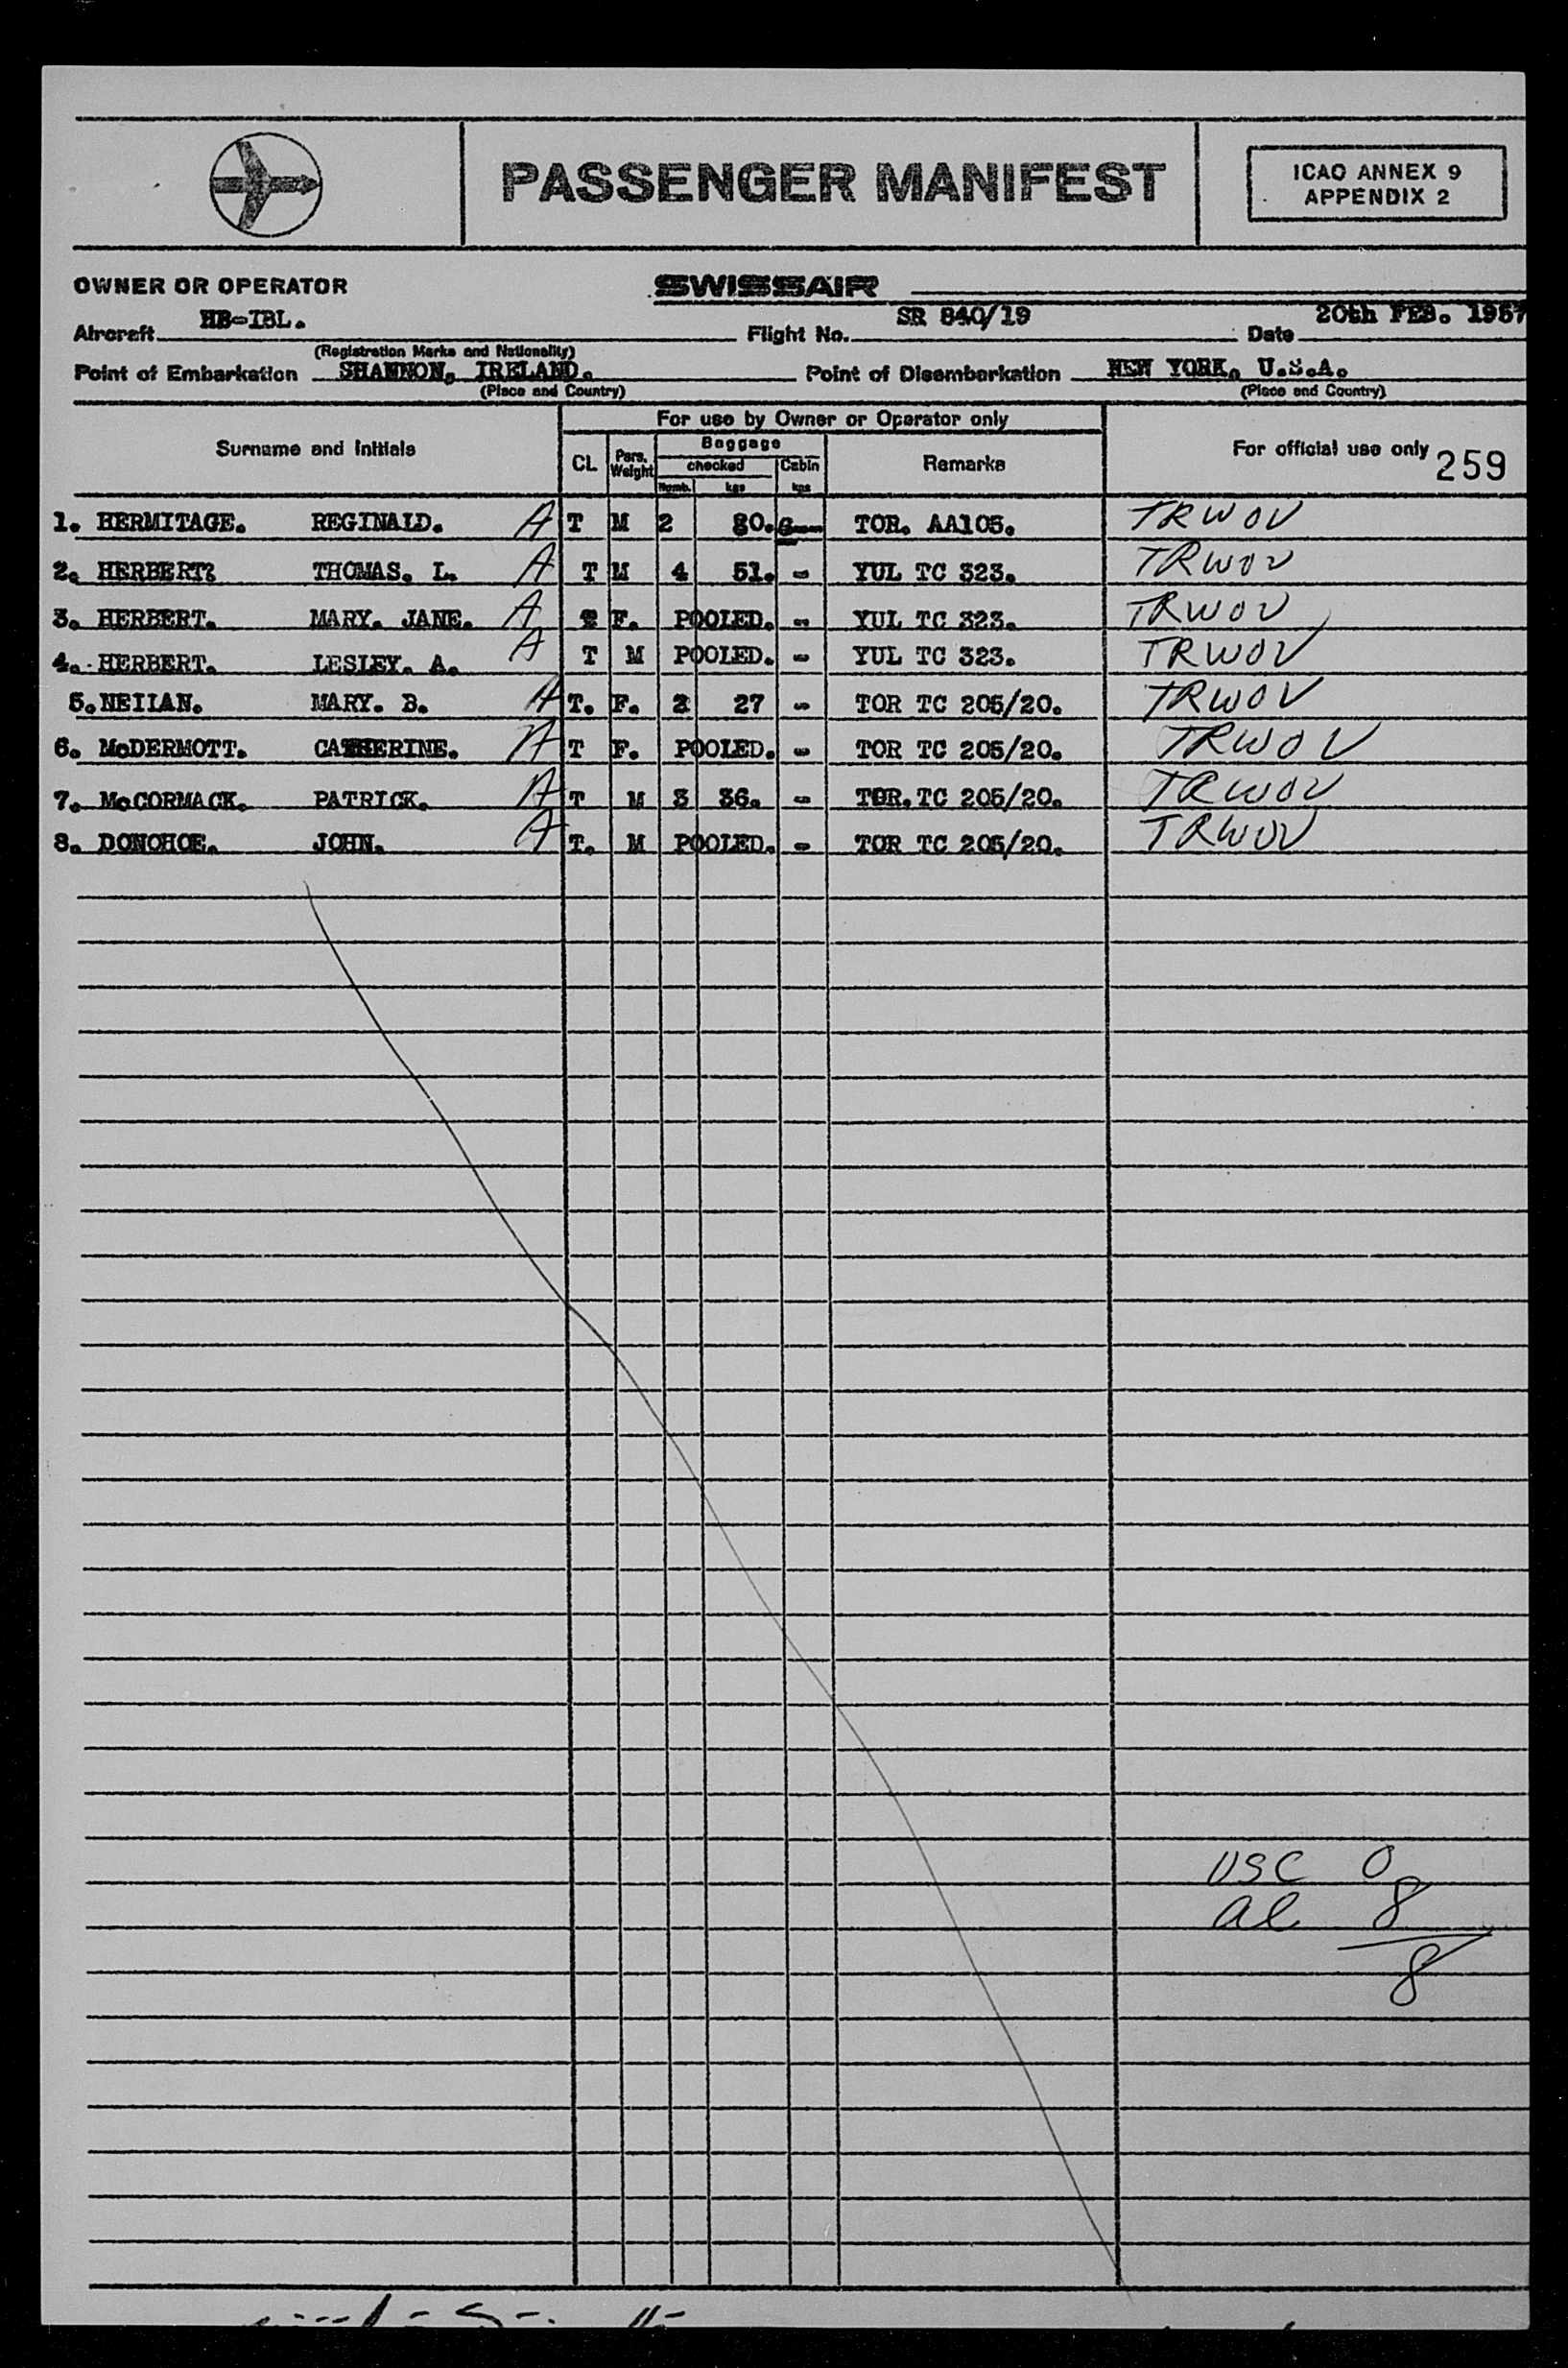 PASSENGER MANIFEST
ICAO ANNEX 9
APPENDIX 2
OWNER OR OPERATOR SWISSAIR
Aircraft HB-IBL. Flight No. SR 840/19 Date 20th FEB. 1957
(Registration Marks and Nationality)
Point of Embarkation SHANNON, IRELAND. Point of Disembarkation NEW YORK, U.S.A.
(Place and Country) (Place and Country)
For use by Owner or Operator only
Surname and Initials CL Pers. Weight Baggage checked Numb. kgs Cabin kgs Remarks For official use only 259
1. HERMITAGE. REGINALD. A T M 2 80. TOR. AA105. TRWOV
2. HERBERT? THOMAS. L. A T M 4 51. - YUL TC 323. TRWOV
3. HERBERT. MARY. JANE. A T F. POOLED. - YUL TC 323. TRWOV
4. HERBERT. LESLEY. A. A T M POOLED. - YUL TC 323. TRWOV
5. NEILAN. MARY. B. A T. F. 2 27 - TOR TC 205/20. TRWOV
6. McDERMOTT. CATHERINE. A T F. POOLED. - TOR TC 205/20. TRWOV
7. McCORMACK. PATRICK. A T M 3 36. - TOR. TC 205/20. TRWOV
8. DONOHOE. JOHN. A T. M POOLED. - TOR TC 205/20. TRWOV
USC 0
al 8
8